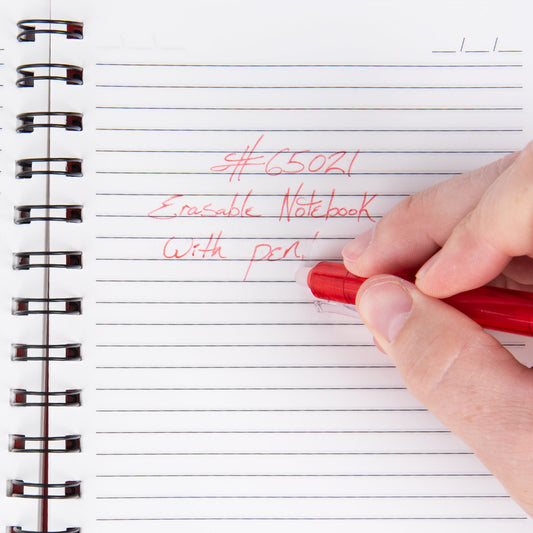 __/__/__
S#65021
Erasable Notebook
With pen!